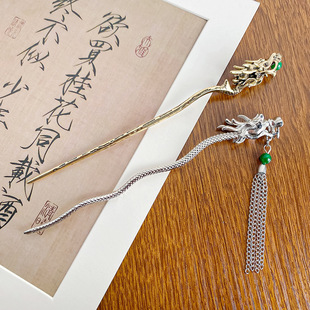 欲買桂花同載酒
終不似少年